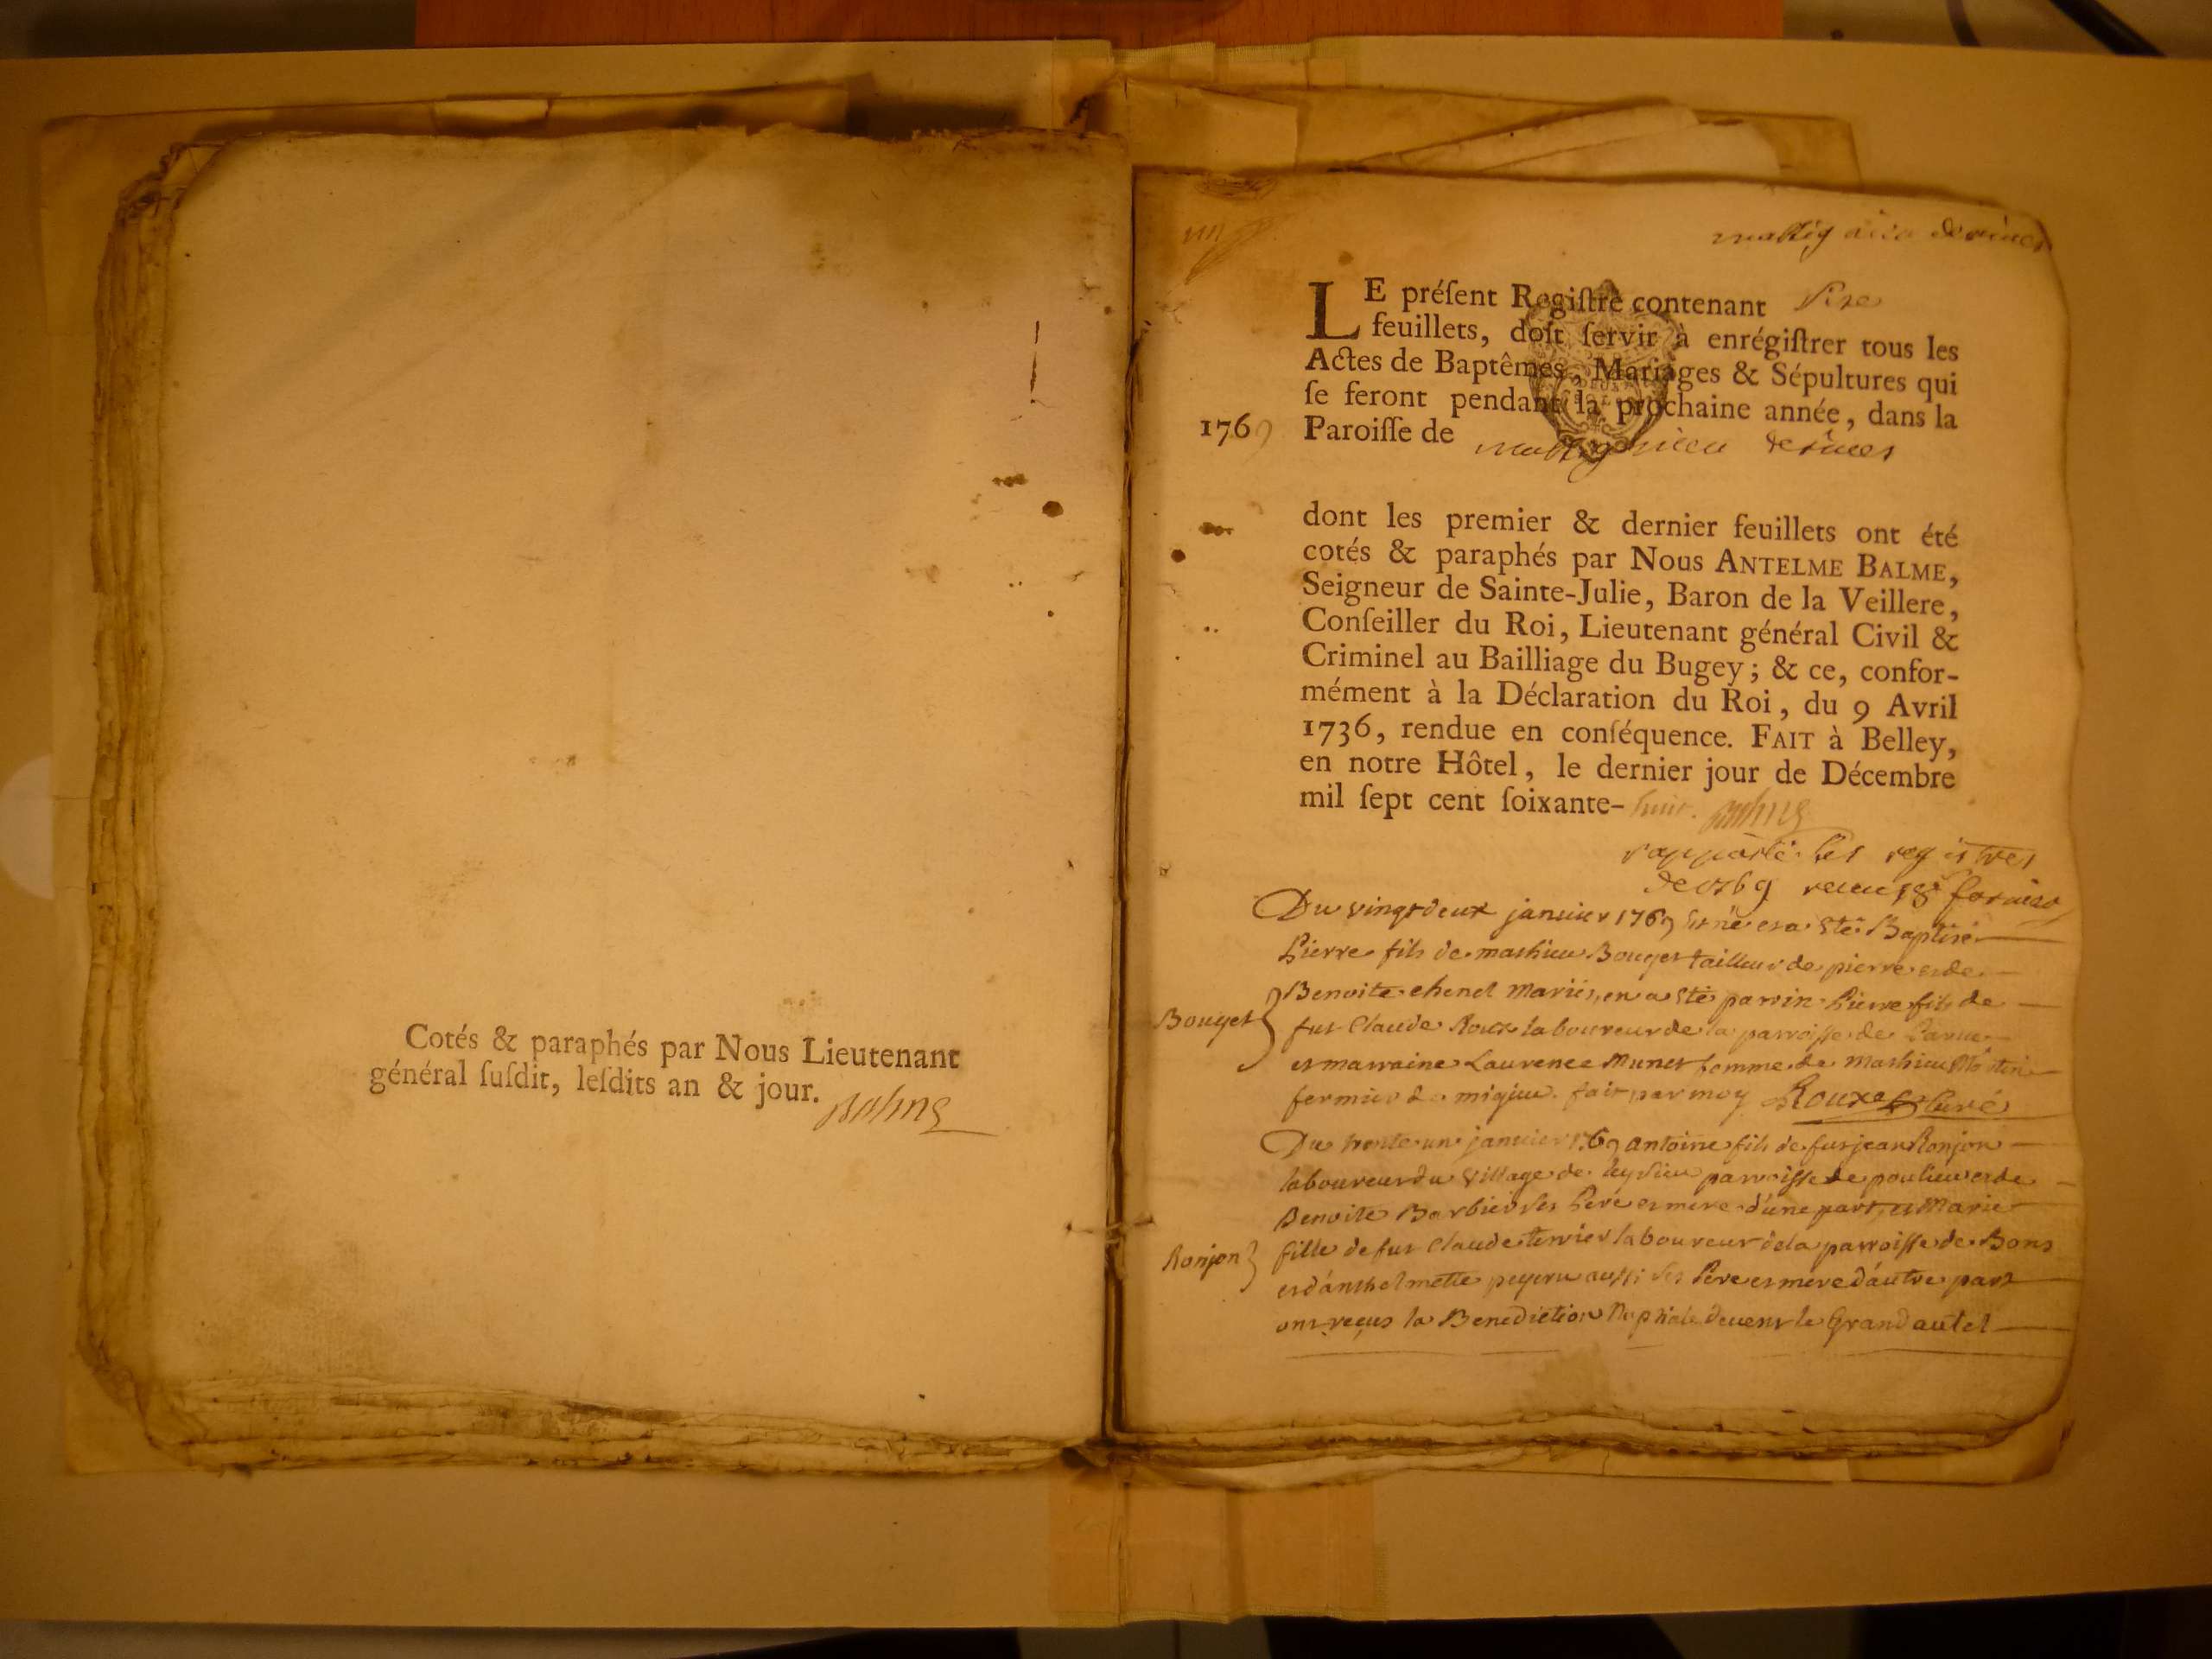 Cotés & paraphés par Nous Lieutenant
général ſuſdit, leſdits an & jour.
Balme
LE préſent Regiſtre contenant
feuillets, doit ſervir à enrégiſtrer tous les
Actes de Baptêmes, Mariages & Sépultures qui
ſe feront pendant la prochaine année, dans la
1769 Paroiſſe de
dont les premier & dernier feuillets ont été
cotés & paraphés par Nous ANTELME BALME,
Seigneur de Sainte-Julie, Baron de la Veillere,
Conſeiller du Roi, Lieutenant général Civil &
Criminel au Bailliage du Bugey; & ce, confor-
mément à la Déclaration du Roi, du 9 Avril
1736, rendue en conſéquence. FAIT à Belley,
en notre Hôtel, le dernier jour de Décembre
mil ſept cent ſoixante-huit. Balme
rapporté les registres
de 1769
Du vingt deux janvier 1769 est né et a eté Baptisé
Pierre fils de mathieu Bouget tailleur de pierre et de
Benoite chenel mariés, en a eté parrin Pierre fils de
Bouget
fut Claude Roux laboureur de la parroisse de
et marraine Laurence Munet femme de mathieu
fermier de migieu. fait par moy Roux Curé
Du trente un janvier 1769 antoine fils de fut jean Ronjon
laboureur du village de leysieu parroisse de poulieu et de
Benoite Barbier ses Pere et mere d'une part, et Marie
Ronjon
fille de fut Claude terrier laboureur de la parroisse de Bons
et d'anthelmette peyeru aussi ses Pere et mere d'autre part
ont reçus la Benediction Nuptiale devent le Grand autel